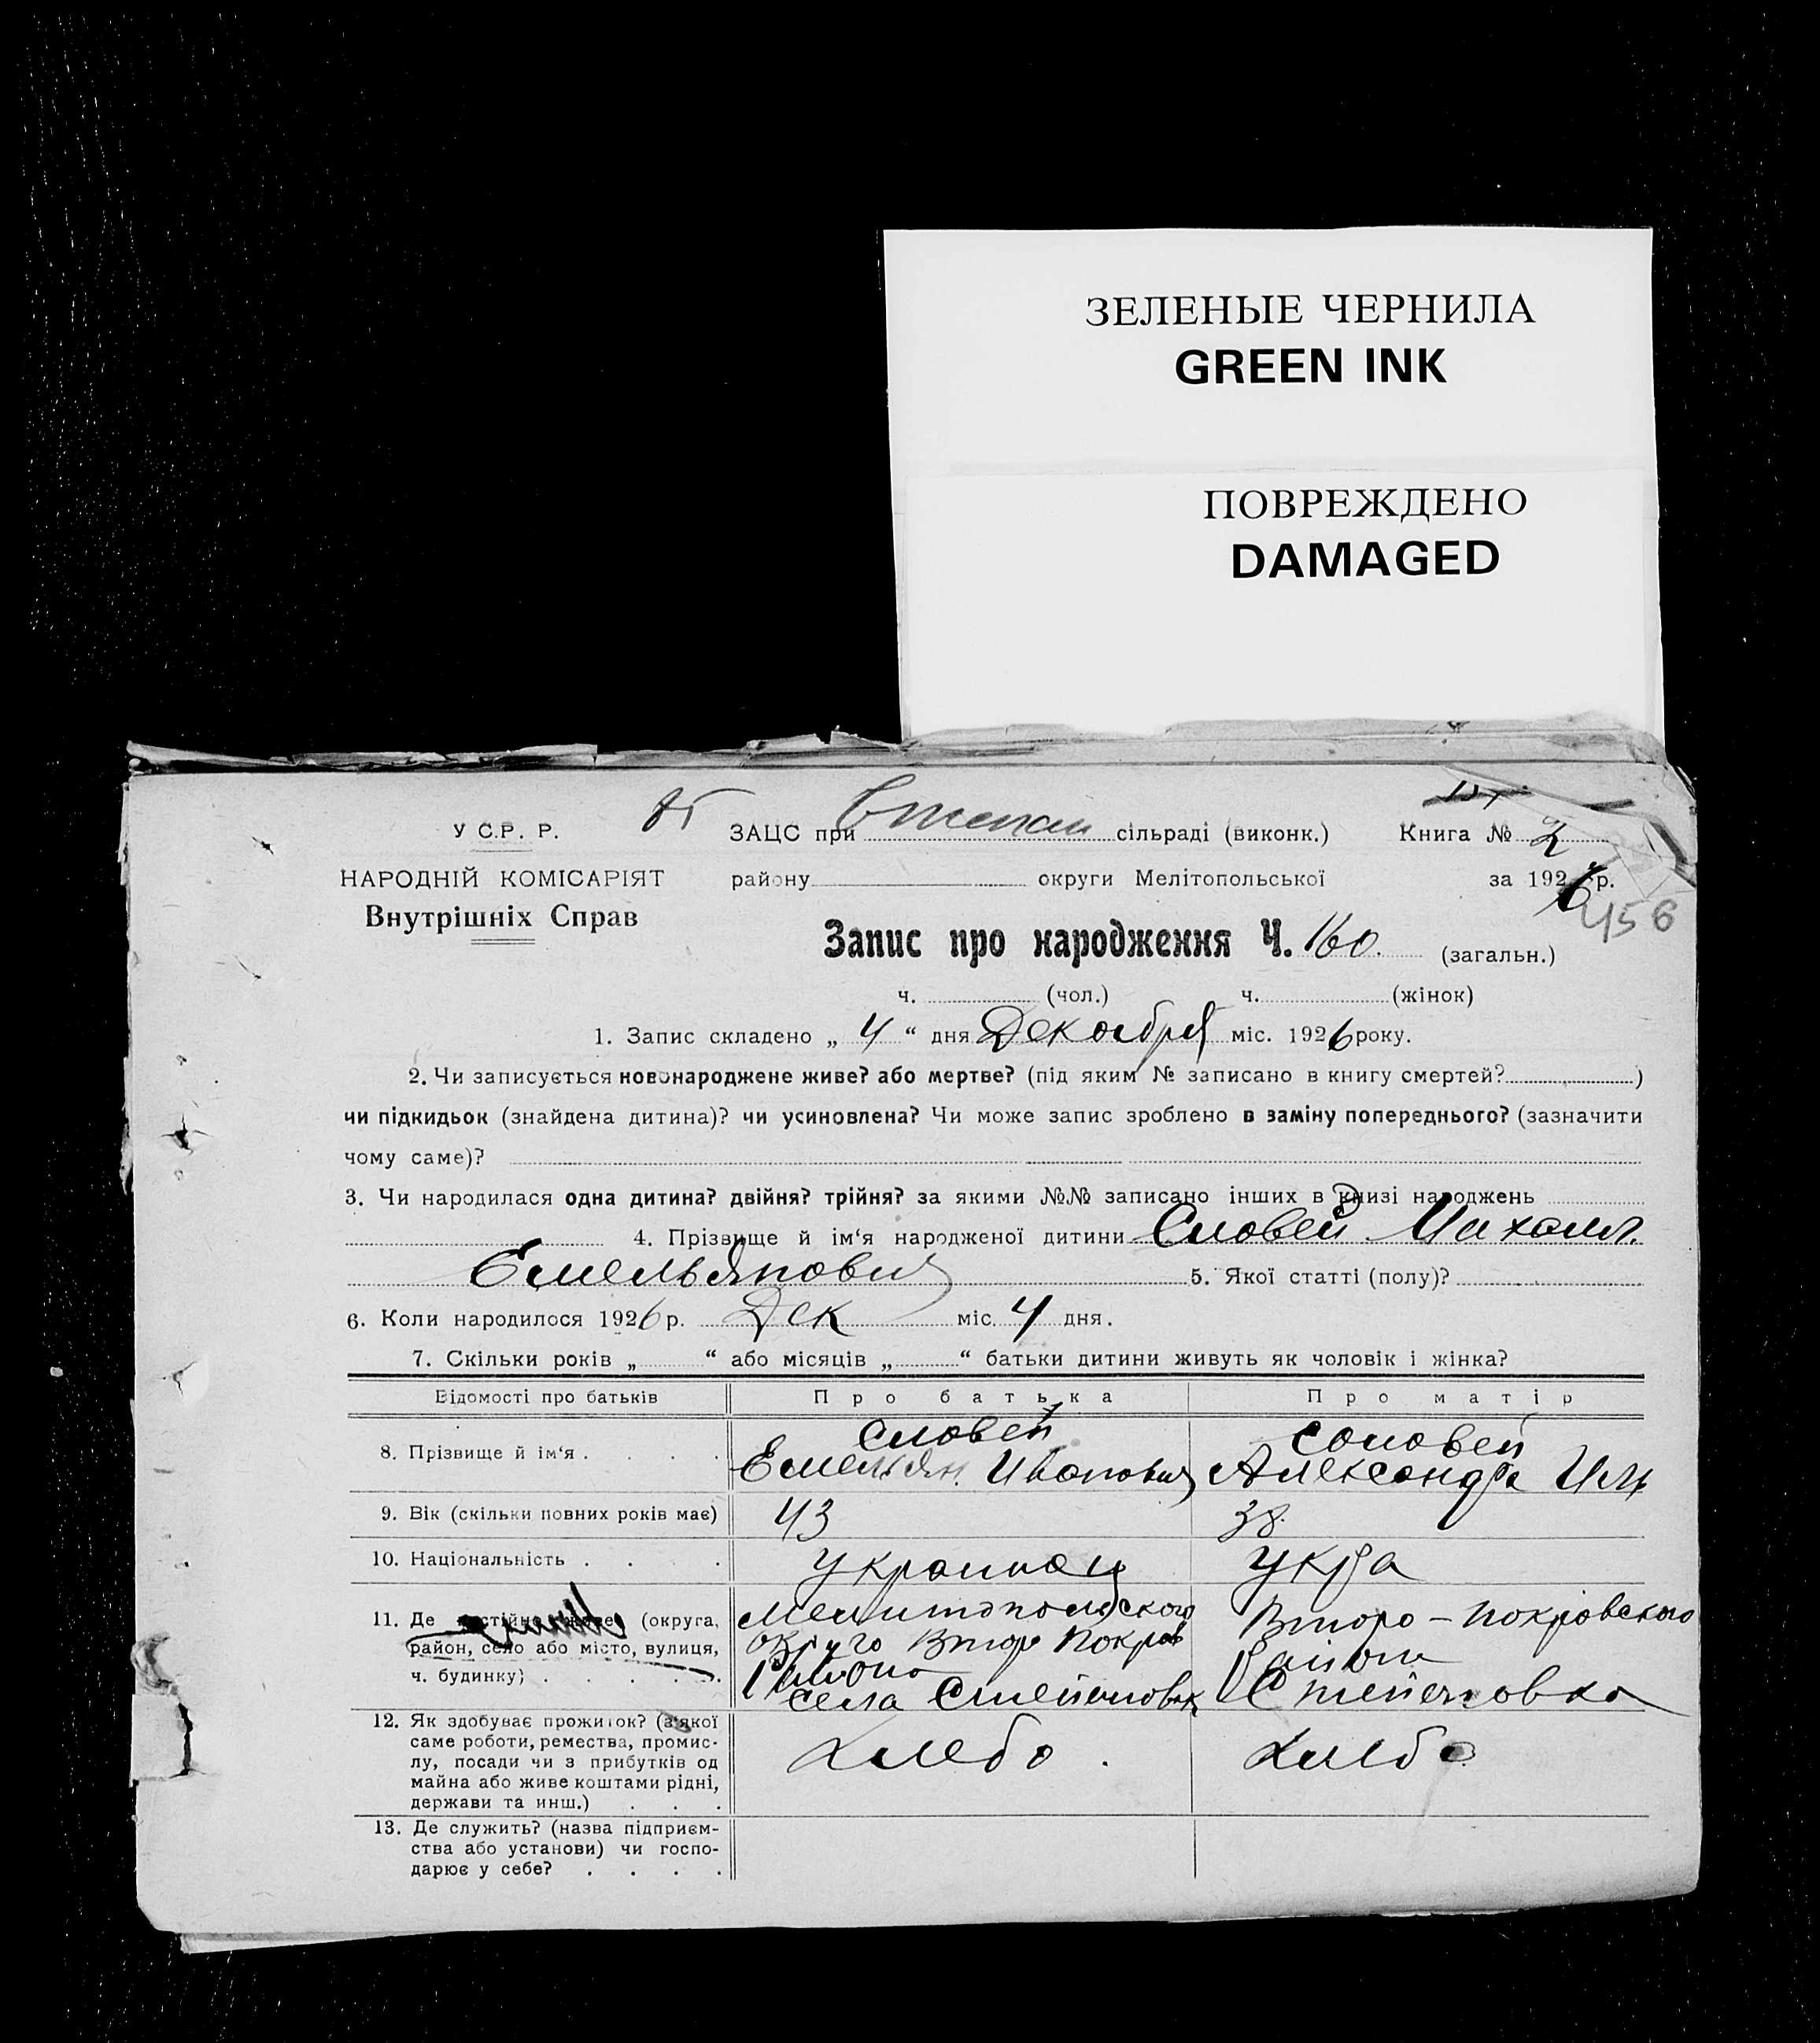 ЗЕЛЕНЫЕ ЧЕРНИЛА
GREEN INK
ПОВРЕЖДЕНО
DAMAGED
У С.Р. Р.
ЗАЦС при Степан сільраді (виконк.) Книга № 2
НАРОДНІЙ КОМІСАРІЯТ
району округи Мелітопольської за 1926 р.
Внутрішніх Справ
456
Запис про народження Ч. 160. (загальн.)
ч. (чол.) ч. (жінок)
1. Запис складено „ 4 “ дня Декабря міс. 1926 року.
2. Чи записується новонароджене живе? або мертве? (під яким № записано в книгу смертей? )
чи підкидьок (знайдена дитина)? чи усиновлена? Чи може запис зроблено в заміну попереднього? (зазначити
чому саме)?
3. Чи народилася одна дитина? двійня? трійня? за якими №№ записано інших в книзі народжень
4. Прізвище й ім‘я народженої дитини Словей Михаил.
Емельянович 5. Якої статті (полу)?
6. Коли народилося 1926 р. Дек міс. 4 дня.
7. Скільки років „ “ або місяців „ “ батьки дитини живуть як чоловік і жінка?
Відомості про батьків Про батька Про матір
8. Прізвище й ім‘я . . . . Словей Соловей
Емельян. Иванович Александра
9. Вік (скільки повних років має) 43 38.
10. Національність . . . Украинец Укра
11. Де постійно живе (округа, Мелитопольского Второ-Покровского
район, село або місто, вулиця, округо Второ Покров
ч. будинку) . . . . . района района
села Степановк Степановка
12. Як здобуває прожиток? (з якої
саме роботи, ремества, промис-
лу, посади чи з прибутків од Хлебо. Хлебо
майна або живе коштами рідні,
держави та инш.) . . .
13. Де служить? (назва підприєм-
ства або установи) чи госпо-
дарює у себе? . . . .